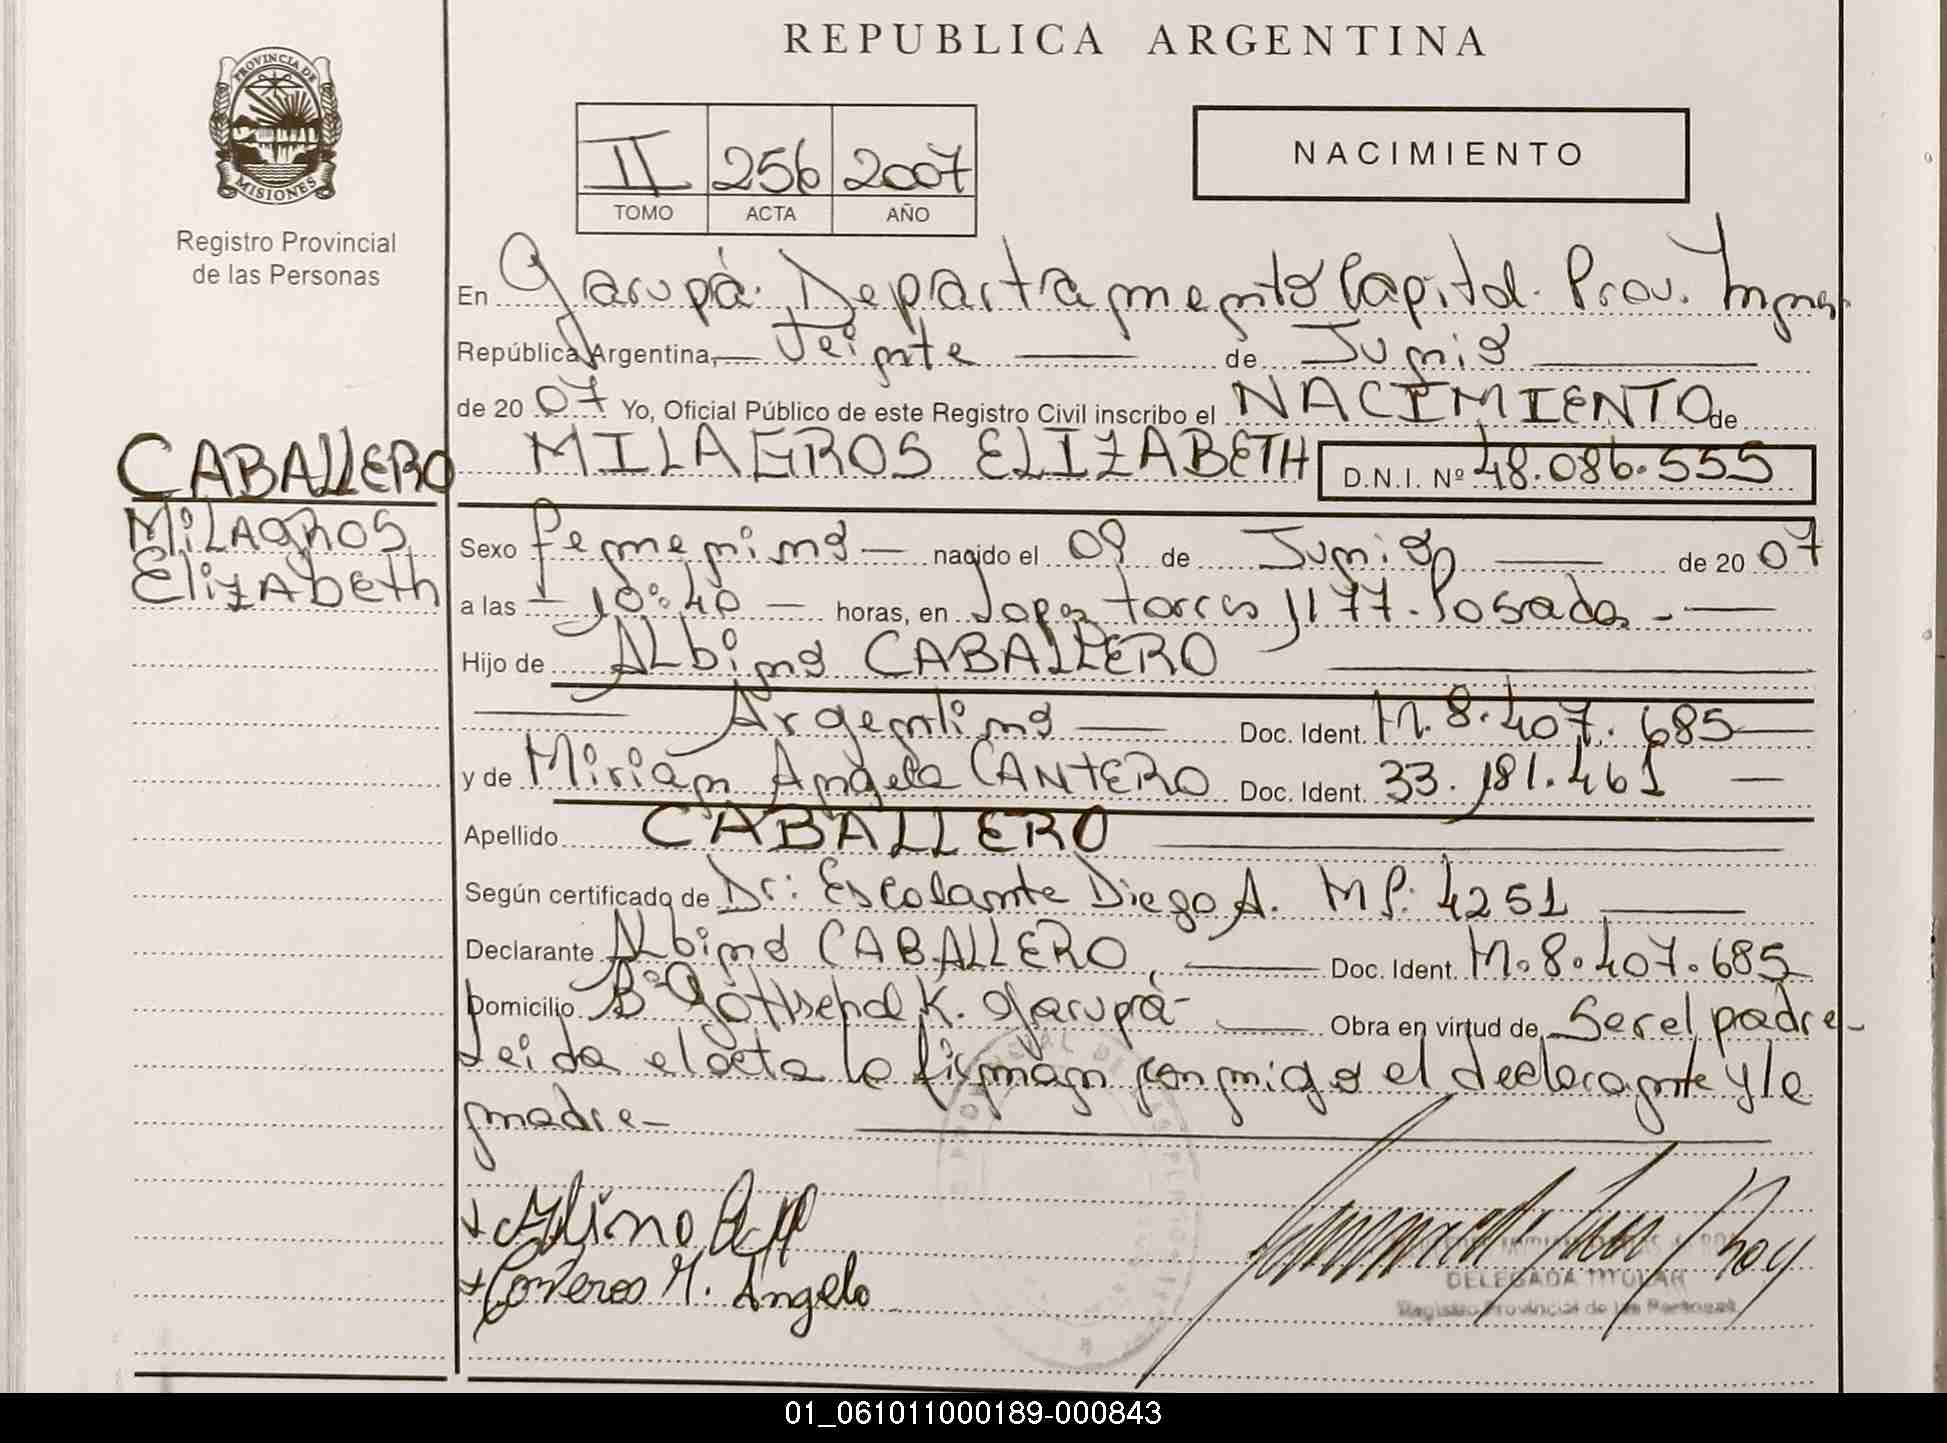 REPUBLICA ARGENTINA
PROVINCIA DE
MISIONES
Registro Provincial
de las Personas
II 256 2007
TOMO ACTA AÑO
NACIMIENTO
En Garupá. Departamento Capital. Prov. Mnes
República Argentina, Veinte de Junio
de 2007 Yo, Oficial Público de este Registro Civil inscribo el NACIMIENTO de
CABALLERO
MILAGROS ELIZABETH D.N.I. Nº 48.086.555
Milagros
Elizabeth
Sexo femenino nacido el 09 de Junio de 2007
a las 10:40 horas, en Lopez torres 1177. Posadas
Hijo de Albino CABALLERO
Argentino Doc. Ident. M. 8.407.685
y de Mirian Angela CANTERO Doc. Ident. 33.181.461
Apellido CABALLERO
Según certificado de Dr: Escalante Diego A. MP: 4251
Declarante Albino CABALLERO, Doc. Ident. M. 8.407.685
Domicilio Bº Gottschal K. Garupá Obra en virtud de Ser el padre-
Leida el acta la firman conmigo el declarante y la
madre-
DELEGADA TITULAR
Registro Provincial de las Personas
M. Angela
01_061011000189-000843